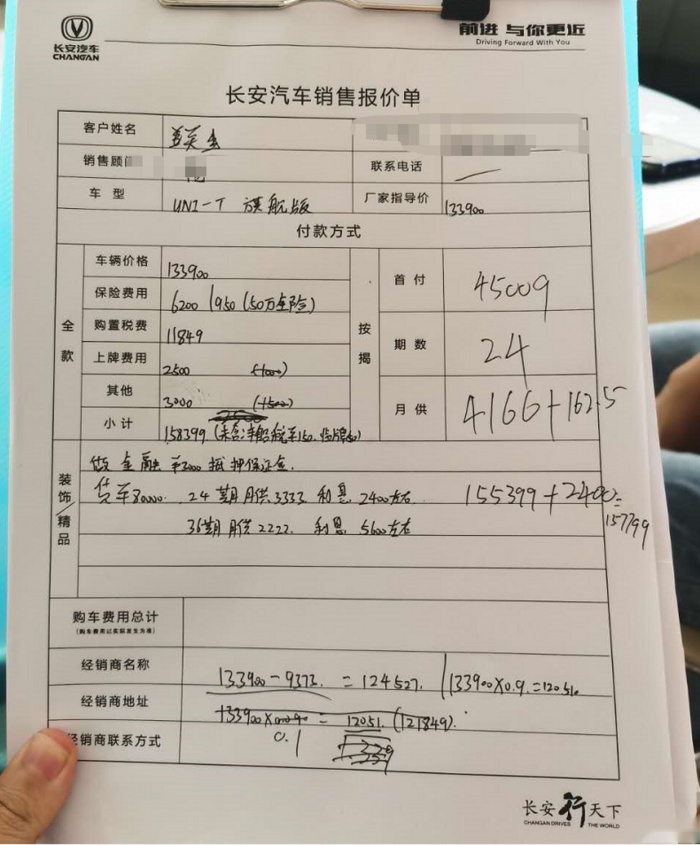 长安汽车
CHANGAN
前进 与你更近
Driving Forward With You
长安汽车销售报价单
客户姓名
销售顾 联系电话
车 型 UNI-T 旗舰版 厂家指导价 133900
付款方式
全款
车辆价格 133900
保险费用 6200 1950 (50万全险)
购置税费 11849
上牌费用 2500
其他 3000
小计 158399
按揭
首付 45009
期数 24
月供 4166+162.5
装饰/精品
做金融 ¥3000 抵押保证金.
货车80000. 24期月供3333 利息2400左右. 155399+2400=
157799
36期月供2222. 利息 5600左右
购车费用总计
(购车费用以实际发生为准)
经销商名称 133900-9373. =124527. 133900×0.9.=120510.
经销商地址 133900× = 12051. (121849).
0.1
经销商联系方式
长安行天下
CHANGAN DRIVES THE WORLD